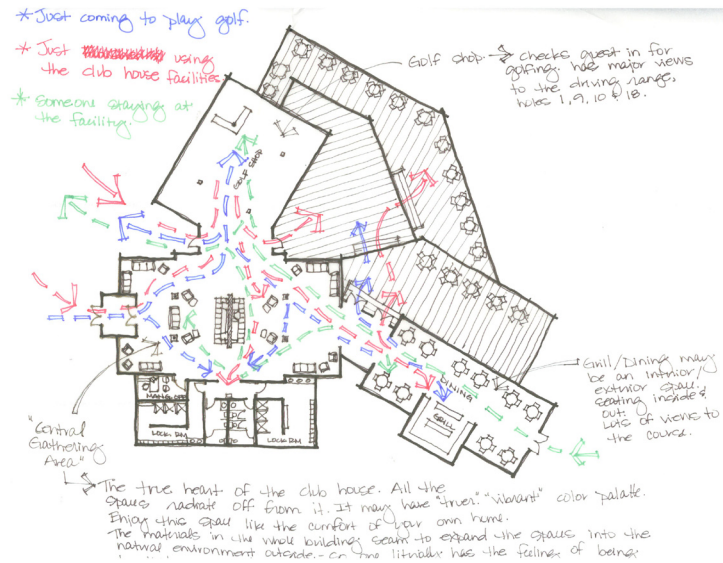 * Just coming to play golf.
* Just using
the club house facilities
* Someone staying at
the facility.
Golf shop → checks guest in for
golfing. has major views
to the driving range,
holes 1, 9, 10 & 18.
GOLF SHOP
DINING
GRILL
Grill/Dining may
be an intirior/
exterior space.
seating inside &
out.
Lots of views to
the course.
LOCK. RM
LOCK. RM
"Central
Gathering
Area"
The true heart of the club house. All the
spaces radiate off from it. It may have "truer" "vibrant" color palatte.
Enjoy this space like the comfort of your own home.
The materials in the whole building seam to expand the spaces into the
natural environment outside. has the feeling of being